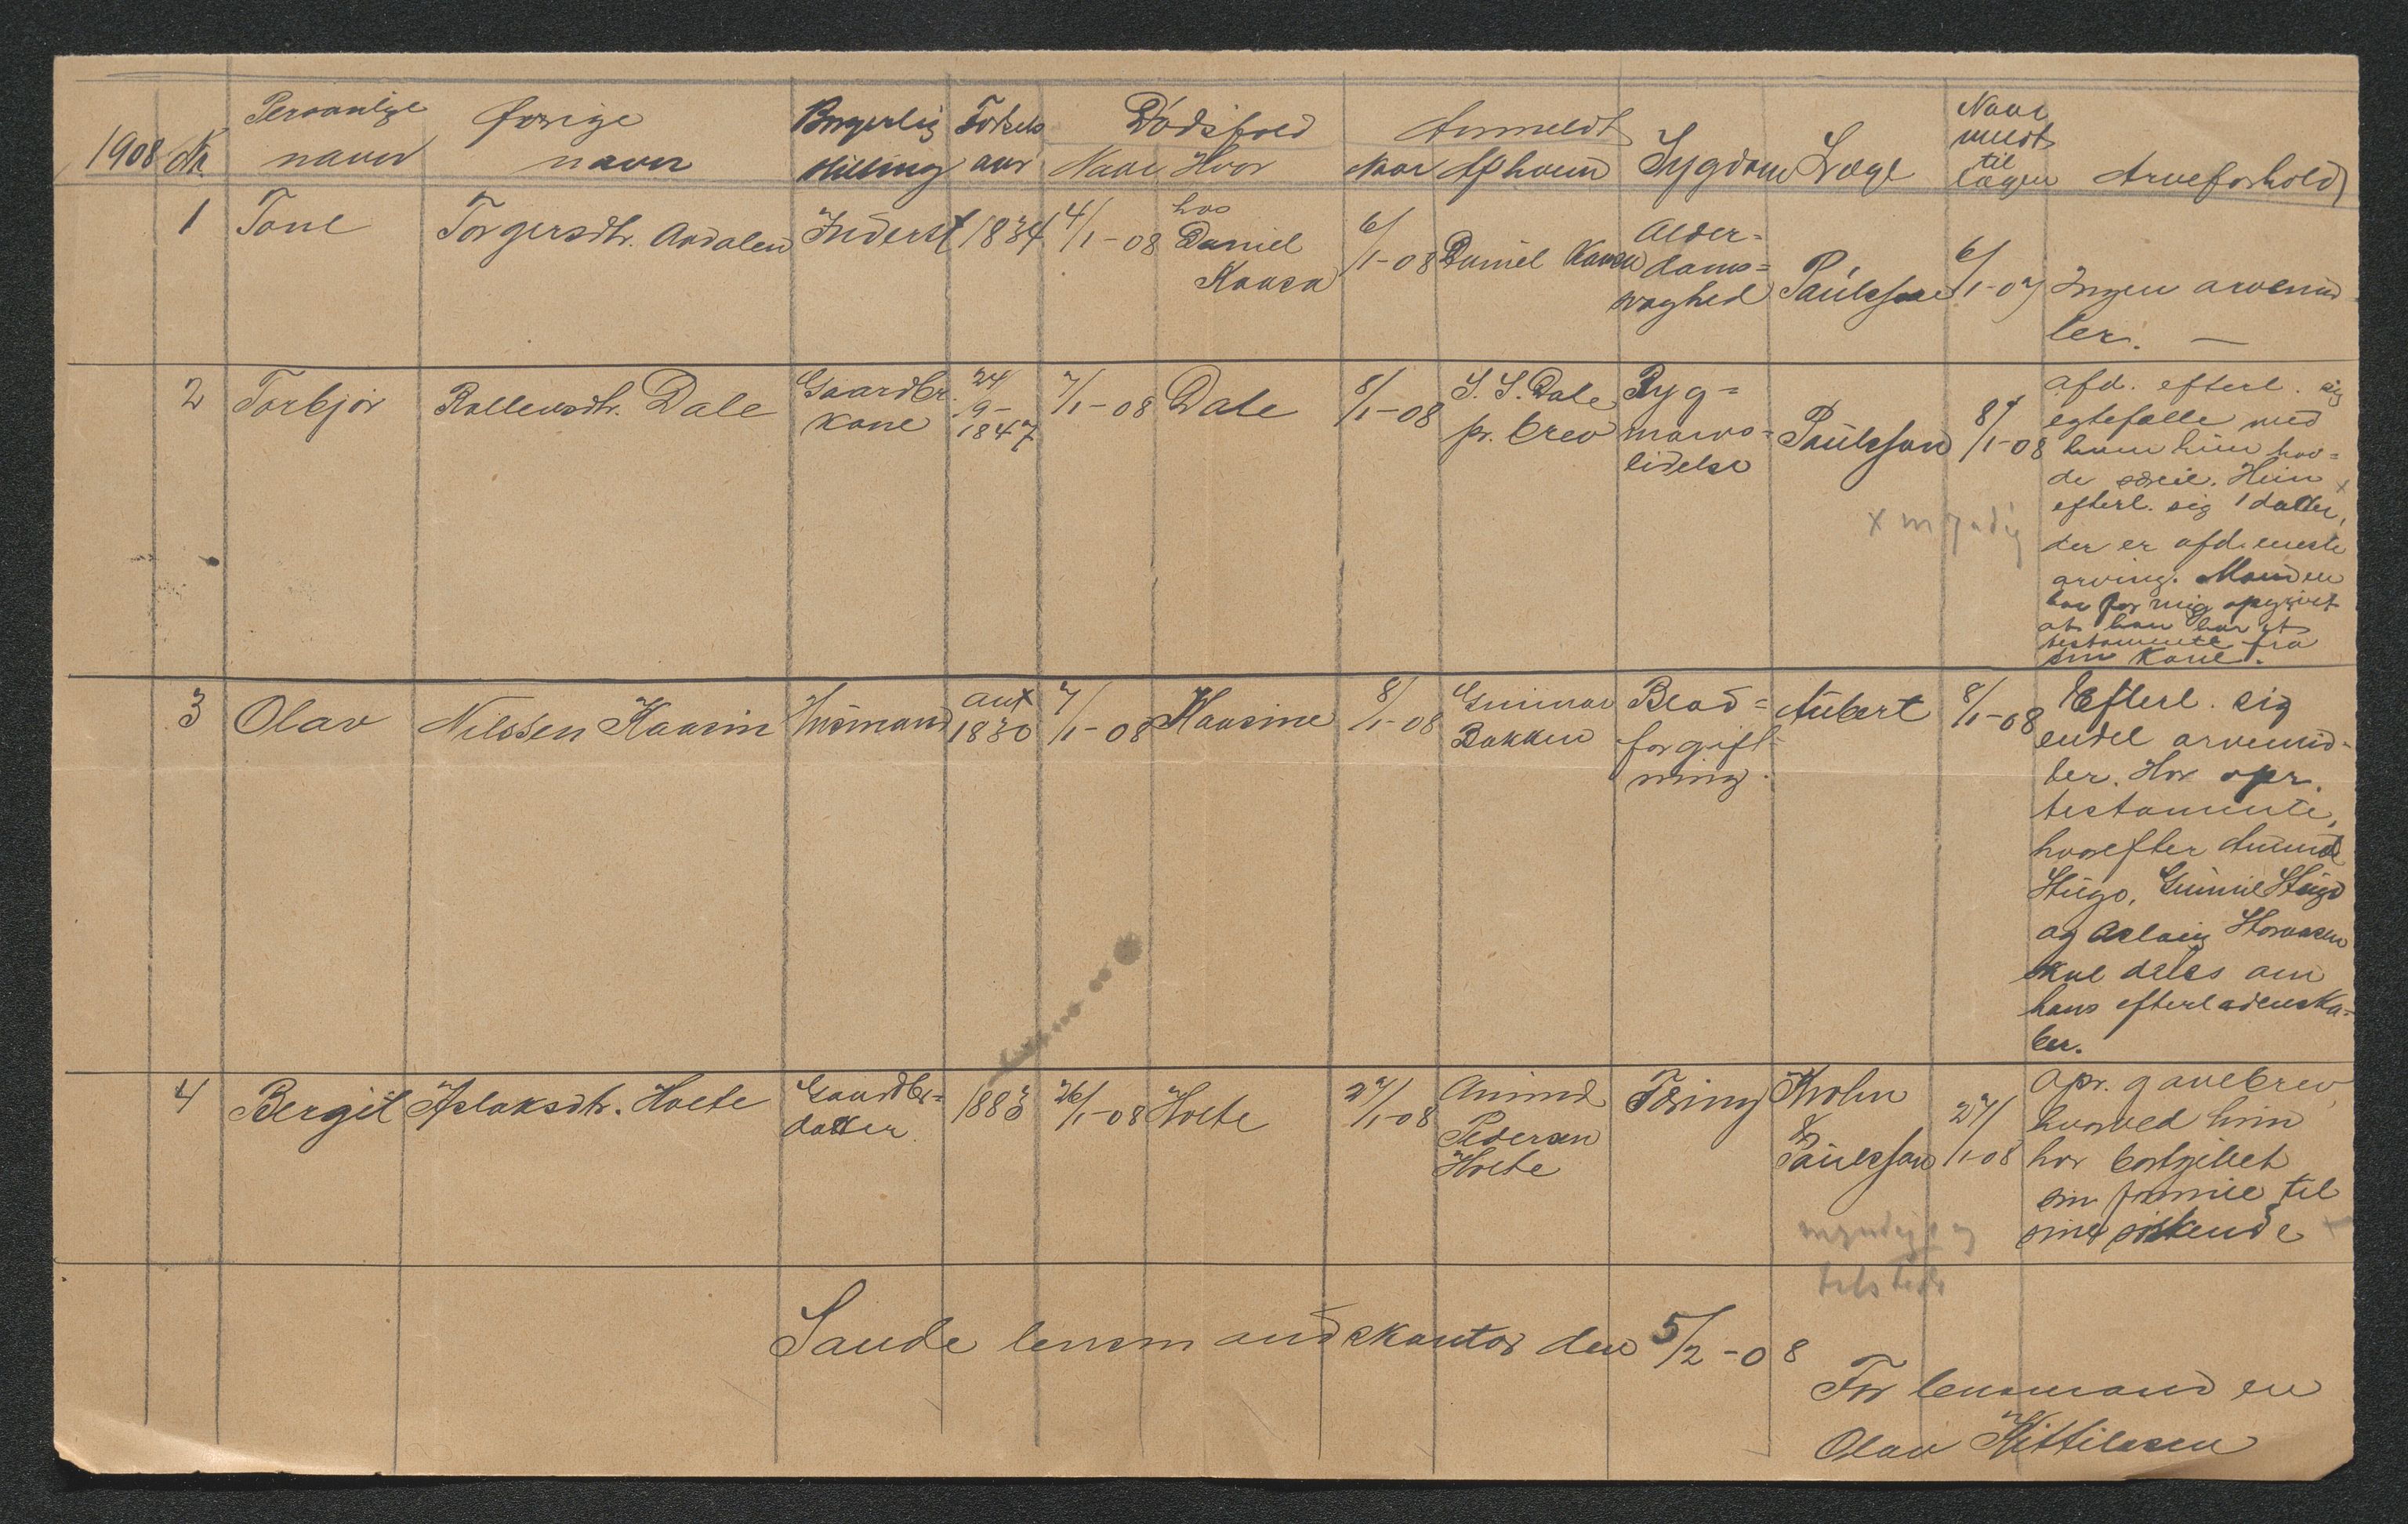 1908 Nr.
Personlige navn
Øvrige navn
Borgerlig stilling
Fødsels aar
Dødsfald
Naar Hvor
Anmeldt
Naar Af hvem
Sygdom
Læge
Naar meldt til lægen
Arveforhold
1 Tone
Torgersdtr. Aardalen
Inderst
1834
4/1-08
hos
Daniel
Kaasa
6/1-08
Daniel Kaasa
Alder=
doms=
svaghed
Paulsson
6/1-07
Ingen arvemid-
ler. —
2 Torbjør
Rollevsdtr. Dale
Gaardbr.
kone
24/9-
1847
7/1-08
Dale
8/1-08
S. S. Dale
pr. brev
Ryg=
marvs=
lidelse
Paulsson
8/1-08
Afd. efterl. sig
egtefælle med
hvem hun hav=
de særeie. Hun
efterl. sig 1 datter, x
der er afd. eneste
arving. Manden
har for mig opgivet
at han har et
testamente fra
sin kone.
x myndig
3 Olav
Nilssen Haasin
Husmand
ant
1830
7/1-08
Haasine
8/1-08
Gunnar
Bakken
Blod=
forgift-
ning.
Aubert
8/1-08
Efterl. sig
endel arvemid-
ler. Har opr.
testamente,
hvorefter Amund
Stugo, Gunnil Stugo
og Aslaug
skal deles om
hans efterladenska-
ber.
4 Bergit
Aslaksdtr. Holte
Gaardbr=
datter.
1883
26/1-08
Holte
27/1-08
Amund
Pedersen
Holte
Tæring
Krohn
og
Paulsson
27/1-08
Opr. gavebrev,
hvorved hun
har bortgivet
sin formue til
sine søskende x
myndige og
tilstede
Saude lensmandskontor den 5/2-08
For lensmanden
Olav Kittilssen